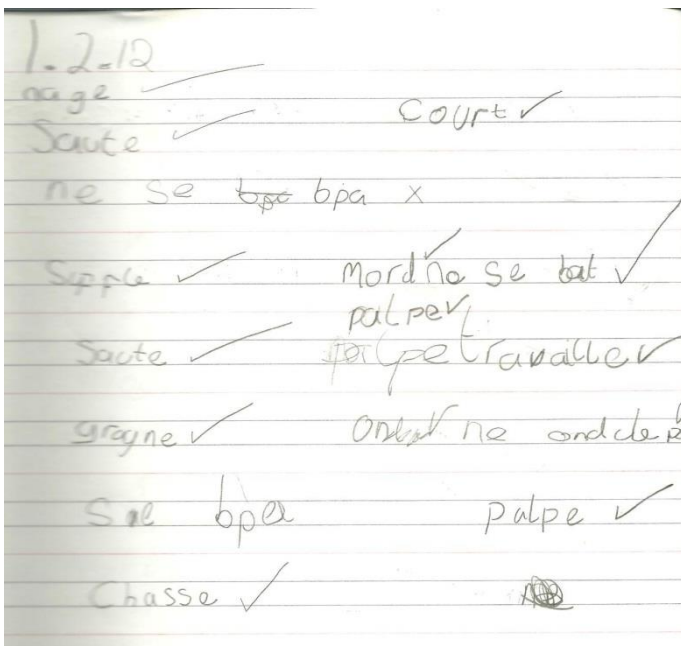 1.2.12
nage
Saute Court
ne se bpa
Sipple Mord ne se bat
palpe
Saute palpe travaille
grogne ne
bpa palpe
Chasse